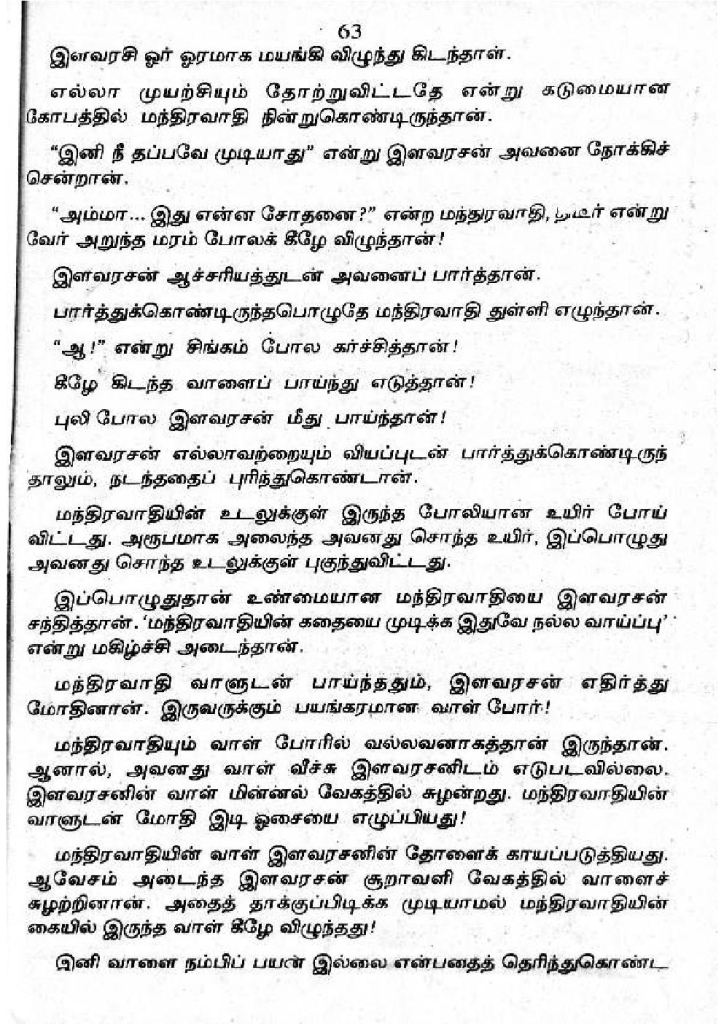 63
இளவரசி ஓர் ஓரமாக மயங்கி விழுந்து கிடந்தாள்.
எல்லா முயற்சியும் தோற்றுவிட்டதே என்று கடுமையான
கோபத்தில் மந்திரவாதி நின்றுகொண்டிருந்தான்.
“இனி நீ தப்பவே முடியாது” என்று இளவரசன் அவனை நோக்கிச்
சென்றான்.
“அம்மா... இது என்ன சோதனை?” என்ற மந்திரவாதி, என்று
வேர் அறுந்த மரம் போலக் கீழே விழுந்தான்!
இளவரசன் ஆச்சரியத்துடன் அவனைப் பார்த்தான்.
பார்த்துக்கொண்டிருந்தபொழுதே மந்திரவாதி துள்ளி எழுந்தான்.
“ஆ!” என்று சிங்கம் போல கர்ச்சித்தான்!
கீழே கிடந்த வாளைப் பாய்ந்து எடுத்தான்!
புலி போல இளவரசன் மீது பாய்ந்தான்!
இளவரசன் எல்லாவற்றையும் வியப்புடன் பார்த்துக்கொண்டிருந்
தாலும், நடந்ததைப் புரிந்துகொண்டான்.
மந்திரவாதியின் உடலுக்குள் இருந்த போலியான உயிர் போய்
விட்டது. அரூபமாக அலைந்த அவனது சொந்த உயிர், இப்பொழுது
அவனது சொந்த உடலுக்குள் புகுந்துவிட்டது.
இப்பொழுதுதான் உண்மையான மந்திரவாதியை இளவரசன்
சந்தித்தான். ‘மந்திரவாதியின் கதையை முடிக்க இதுவே நல்ல வாய்ப்பு’
என்று மகிழ்ச்சி அடைந்தான்.
மந்திரவாதி வாளுடன் பாய்ந்ததும், இளவரசன் எதிர்த்து
மோதினான். இருவருக்கும் பயங்கரமான வாள் போர்!
மந்திரவாதியும் வாள் போரில் வல்லவனாகத்தான் இருந்தான்.
ஆனால், அவனது வாள் வீச்சு இளவரசனிடம் எடுபடவில்லை.
இளவரசனின் வாள் மின்னல் வேகத்தில் சுழன்றது. மந்திரவாதியின்
வாளுடன் மோதி இடி ஓசையை எழுப்பியது!
மந்திரவாதியின் வாள் இளவரசனின் தோளைக் காயப்படுத்தியது.
ஆவேசம் அடைந்த இளவரசன் சூறாவளி வேகத்தில் வாளைச்
சுழற்றினான். அதைத் தாக்குப்பிடிக்க முடியாமல் மந்திரவாதியின்
கையில் இருந்த வாள் கீழே விழுந்தது!
இனி வாளை நம்பிப் பயன் இல்லை என்பதைத் தெரிந்துகொண்ட